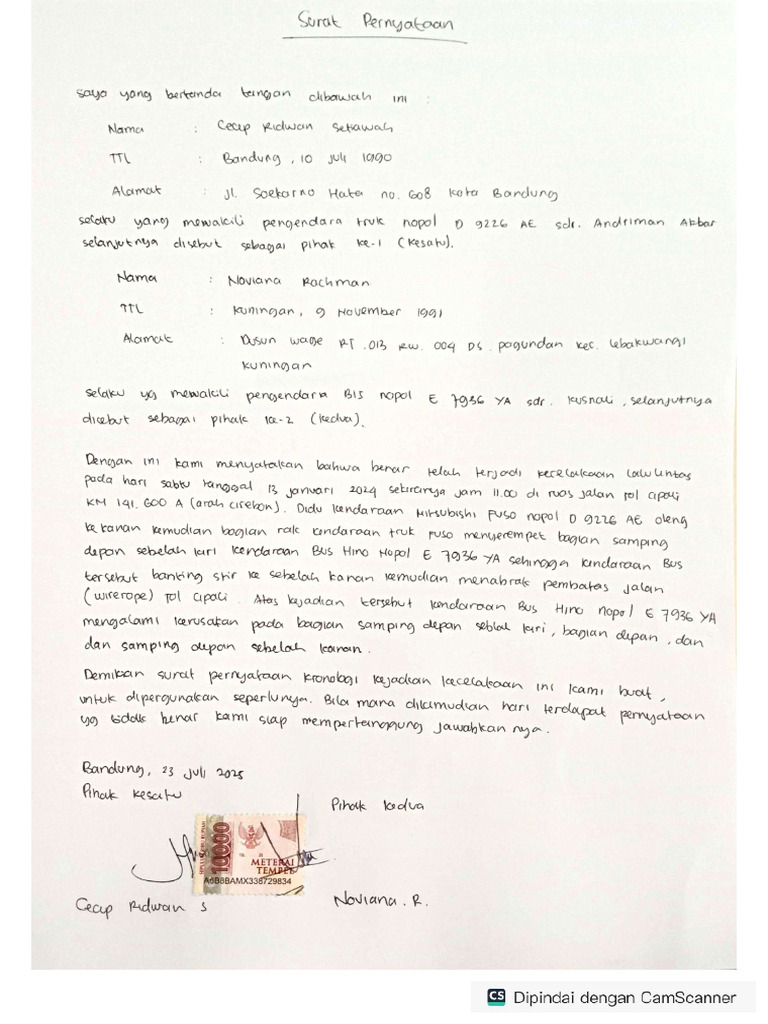 Surat Pernyataan
Saya yang bertanda tangan dibawah ini :
Nama : Cecep Ridwan Setiawan
TTL : Bandung, 10 Juli 1990
Alamat : Jl. Soekarno Hata no. 608 Kota Bandung
selaku yang mewakili pengendara truk nopol D 9226 AE sdr. Andriman Akbar
selanjutnya disebut sebagai pihak ke-1 (kesatu).
Nama : Noviana Rachman
TTL : Kuningan, 9 November 1991
Alamat : Dusun wage RT .013 RW. 004 DS. pagundan kec. lebakwangi
kuningan
selaku yg mewakili pengendara BIS nopol E 7936 YA sdr. kusnali, selanjutnya
disebut sebagai pihak ke-2 (kedua).
Dengan ini kami menyatakan bahwa benar telah terjadi kecelakaan lalulintas
pada hari sabtu tanggal 13 januari 2024 sekiranya jam 11.00 di ruas jalan tol cipali
KM 141.600 A (arah cirebon). Didu kendaraan Mitsubishi Fuso nopol D 9226 AE oleng
ke kanan kemudian bagian rak kendaraan truk fuso menyerempet bagian samping
depan sebelah kiri kendaraan Bus Hino Nopol E 7936 YA sehingga kendaraan Bus
tersebut banting stir ke sebelah kanan kemudian menabrak pembatas jalan
(wirerope) tol cipali. Atas kejadian tersebut kendaraan Bus Hino nopol E 7936 YA
mengalami kerusakan pada bagian samping depan seblah kiri, bagian depan, dan
dan samping depan sebelah kanan.
Demikan surat pernyataan kronologi kejadian kecelakaan ini kami buat,
untuk dipergunakan seperlunya. Bila mana dikemudian hari terdapat pernyataan
yg tidak benar kami siap mempertanggung jawabkan nya.
Bandung, 23 Juli 2025
Pihak kesatu
Pihak kedua
SEPULUH RIBU RUPIAH
10000
METERAI
TEMPEL
A6B8BAMX338729834
Cecep Ridwan S
Noviana. R.
CS Dipindai dengan CamScanner